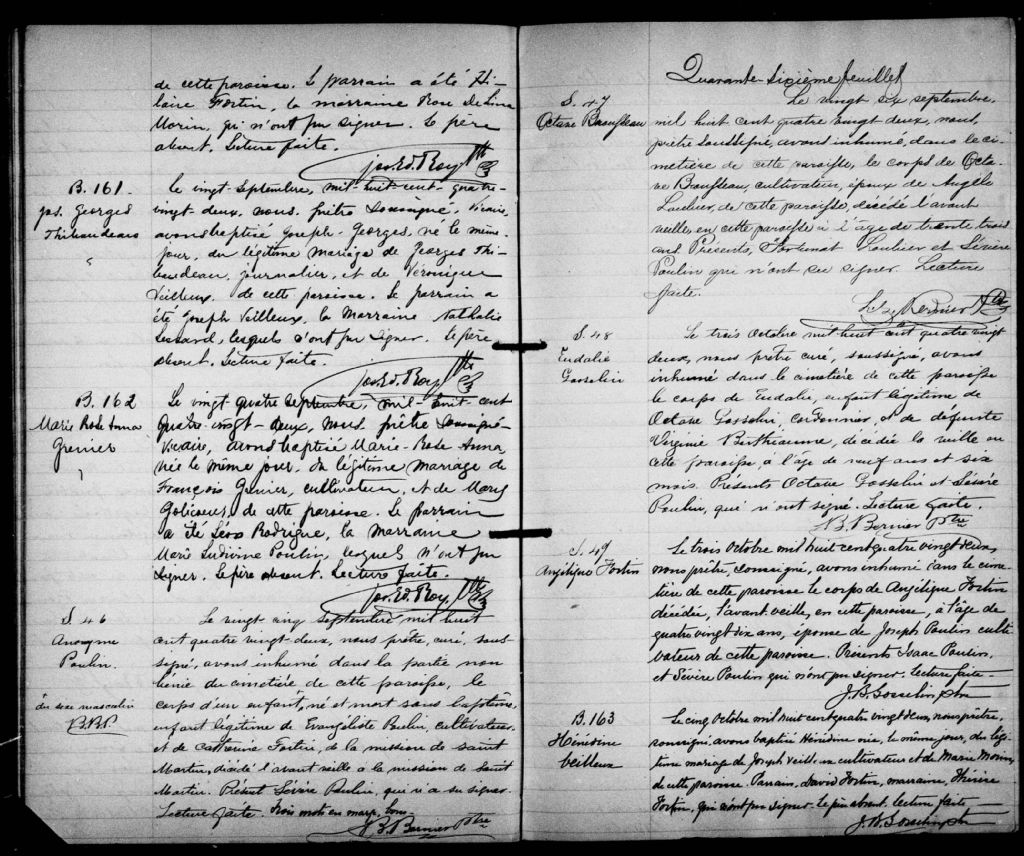 de cette paroisse. Le parrain a été Hi-
laire Fortin, la marraine Rose DeLima
Morin, qui n'ont pu signer. Le père
absent. Lecture faite.
Jos. Ed. Roy Ptre
B. 161
Jos. Georges
Thibaudeau
Le vingt Septembre, mil-huit-cent-quatre-
vingt-deux, nous prêtre soussigné, Vicaire,
avons baptisé Joseph-Georges, né le même
jour, du légitime mariage de Georges Thi-
baudeau, journalier, et de Véronique
Veilleux, de cette paroisse. Le parrain a
été Joseph Veilleux, la Marraine Nathalie
Lessard, lesquels n'ont pu signer. Le père
absent. Lecture faite.
Jos. Ed. Roy Ptre
B. 162
Marie Rose Anna
Grenier
Le vingt quatre Septembre, mil-huit-cent
quatre-vingt-deux, nous prêtre soussigné
Vicaire, avons baptisé Marie-Rose Anna,
née le même jour, du légitime mariage de
François Grenier, cultivateur, et de Mary
de cette paroisse. Le parrain
a été Léon Rodrigue, la marraine
Marie Ludivine Poulin, lesquels n'ont pu
signer. Le père absent. Lecture faite.
Jos. Ed. Roy Ptre
S. 46
Anonyme
Poulin.
du sexe masculin
B.B.P.
Le vingt cinq Septembre mil huit
cent quatre vingt-deux, nous prêtre, curé, sous-
signé, avons inhumé dans la partie non
bénie du cimetière de cette paroisse, le
corps d'un enfant, né et mort sans baptême,
enfant légitime de Evangéliste Poulin, cultivateur,
et de Catherine Fortin, de la mission de Saint
Martin, décédé l'avant veille à la mission de Saint
Martin. Présent Sévère Poulin, qui n'a su signer.
Lecture faite. Trois mots en marge, bons
J. B. Bernier Ptre
Quarante-Sixième feuillet
S. 47
Octave Beaufleau
Le vingt six septembre,
mil huit cent quatre vingt deux, nous,
prêtre soussigné, avons inhumé, dans le ci-
metière de cette paroisse, le corps de Octa-
ve Beaufleau, cultivateur, époux de Angèle
Loubier, de cette paroisse, décédé l'avant
veille, en cette paroisse à l'âge de trente trois
ans. Présents, Fortunat Loubier et Sévère
Poulin qui n'ont su signer. Lecture
faite.
Bernier Ptre
S. 48
Eudalie
Gosselin
Le trois Octobre mil huit cent quatre vingt
deux, nous prêtre curé, soussigné, avons
inhumé dans le cimetière de cette paroisse
le corps de Eudalie, enfant légitime de
Octave Gosselin, cordonnier, et de défunte
Virginie Berthiaume, décédée la veille en
cette paroisse à l'âge de neuf ans et six
mois. Présents Octave Gosselin et Sévère
Poulin, qui n'ont signé. Lecture faite.
J. B. Bernier Ptre
S. 49
Angélique Fortin
Le trois Octobre mil huit cent quatre vingt deux,
nous prêtre, soussigné, avons inhumé dans le cime-
tière de cette paroisse le corps de Angélique Fortin
décédée, l'avant veille, en cette paroisse, à l'âge de
quatre vingt dix ans, épouse de Joseph Poulin culti-
vateur de cette paroisse. Présents Isaac Poulin,
et Sévère Poulin qui n'ont pu signer. Lecture faite.
J. B. Gosselin, ptre
B. 163
Hénédine
Veilleux
Le cinq Octobre mil huit cent quatre vingt deux, nous prêtre,
soussigné, avons baptisé Hénédine née, le même jour, du légi-
time mariage de Joseph Veilleux cultivateur et de Marie Morin,
de cette paroisse. Parrain, David Fortin, marraine,
Fortin, qui n'ont pu signer. Le père absent. Lecture faite.
J. B. Gosselin, ptre